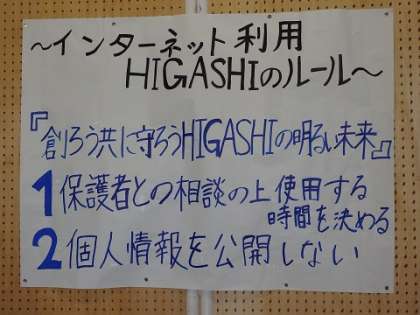 ～インターネット利用
HIGASHIのルール～
『創ろう共に守ろうHIGASHIの明るい未来』
1 保護者との相談の上使用する
時間を決める
2 個人情報を公開しない